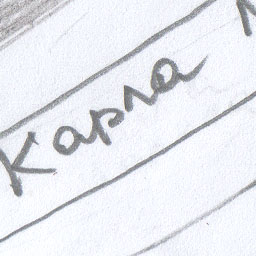 Карла